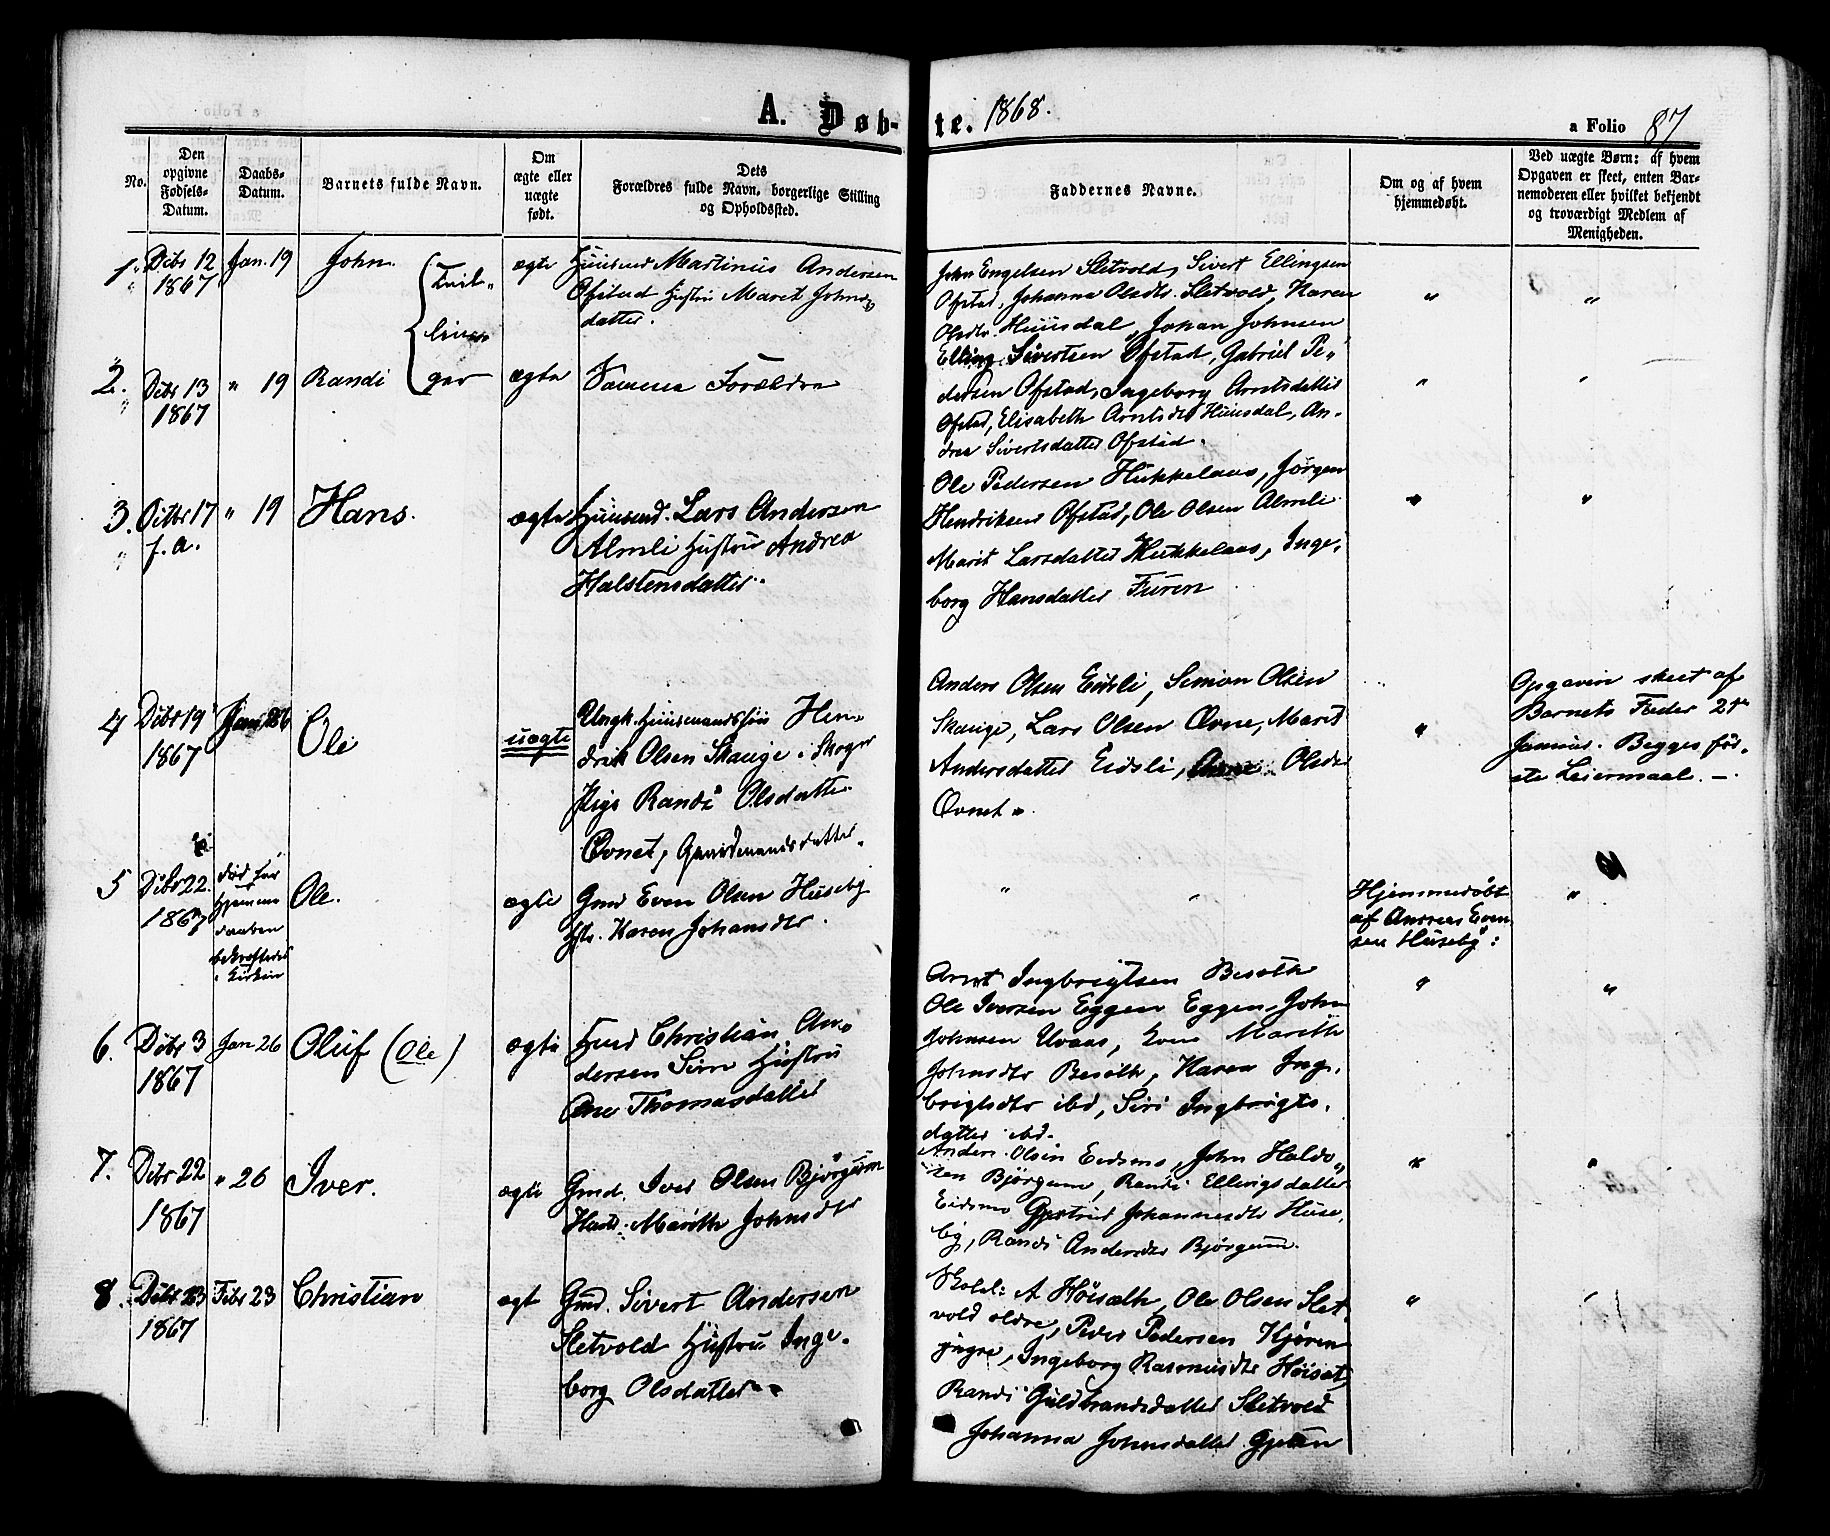 A. Døb-te. 1868.
a Folio 87
No.
Den opgivne Fødsels-Datum.
Daabs-Datum.
Barnets fulde Navn.
Om ægte eller uægte født.
Dets Forældres fulde Navn, borgerlige Stilling og Opholdssted.
Faddernes Navne.
Om og af hvem hjemmedøbt.
Ved uægte Børn: af hvem Opgaven er skeet, enten Barnemoderen eller hvilket bekjendt og troværdigt Medlem af Menigheden.
1. Dcbr 12 1867
Jan. 19
John
Tvil-
linger
ægte
Huusmd Martinus Andersen
Ofstad Hustru Maret Johns
datter.
John Engelsen Sletvold, Sivert Ellingsen
Ofstad, Johanna Olsdtr. Sletvold, Karen
Olsdtr. Huusdal, Johan Johnsen
Elling Sivertsen Ofstad, Gabriel Pe
2. Dcbr 13 1867
" 19
Randi
ægte
Samme Forældre
dersen Ofstad, Ingeborg Arntsdatter
Ofstad, Elisabeth Arntsdtr Huusdal, An-
drea Sivertsdatter Ofstad.
3. Octbr 17
f. a.
" 19
Hans.
ægte
Huusmd. Lars Andersen
Almli Hustru Andrea
Halstensdatter.
Ole Pedersen Hukkelaas, Jørgen
Hendriksen Ofstad, Ole Olsen Almli
Marit Larsdatter Hukkelaas, Inge-
borg Hansdatter Furen
4 Dcbr 19 1867
Jan 26
Ole
uægte
Ungk. Huusmandssøn Hen-
drik Olsen Skauge i Skogn
Pige Randi Olsdatter
Øvnet, Gaardmandsdatter.
Anders Olsen Eidsli, Simon Olsen
Skauge, Lars Olsen Øvne, Marit
Andersdatter Eidsli, Olsdr
Øvnet.
Opgaven skeet af
Barnets Fader 2den
Januar. Begges før-
ste Leiermaal. -
5 Dcbr 22. 1867
død før
Hjemme
daaben
bekræftedes
i Kirken
Ole.
ægte
Gmd Even Olsen Huseby
Hstr. Karen Johansdtr.
Hjemmedøbt
af Andreas Even
sen Huseby:
6. Dcbr 3 1867
Jan 26
Oluf (Ole)
ægte
Husmd Christian An-
dersen Hustru
Ane Thomasdatter
Arnt Ingbrigtsen Besøth
Ole Iversen Eggen Eggen, John
Johnsen Uvaas, Marith
Johnsdtr Besøth, Karen Ing-
brigtsdtr ibd, Siri Ingbrigts-
datter ibd.
7. Dcbr 22 1867
" 26
Iver.
ægte
Gmd. Iver Olsen Bjørgum
Hustr. Marith Johnsdtr
Anders Olsen Eidsmo, John Halvo
sen Bjørgum, Randi Ellingsdatter
Eidsmo Gjertrud Johannesdtr Huse-
by, Randi Andersdtr Bjørgum.
8. Dcbr 23 1867
Febr 23
Christian
ægt
Gmd. Sivert Andersen
Sletvold Hustru Inge-
borg Olsdatter.
Skolel: A Høisæth, Ole Olsen Slet
vold eldre, Peder Pedersen Kjøren
yngre, Ingeborg Rasmusdtr Høisæt
Randi Guldbrandsdatter Sletvold
Johanna Johnsdatter